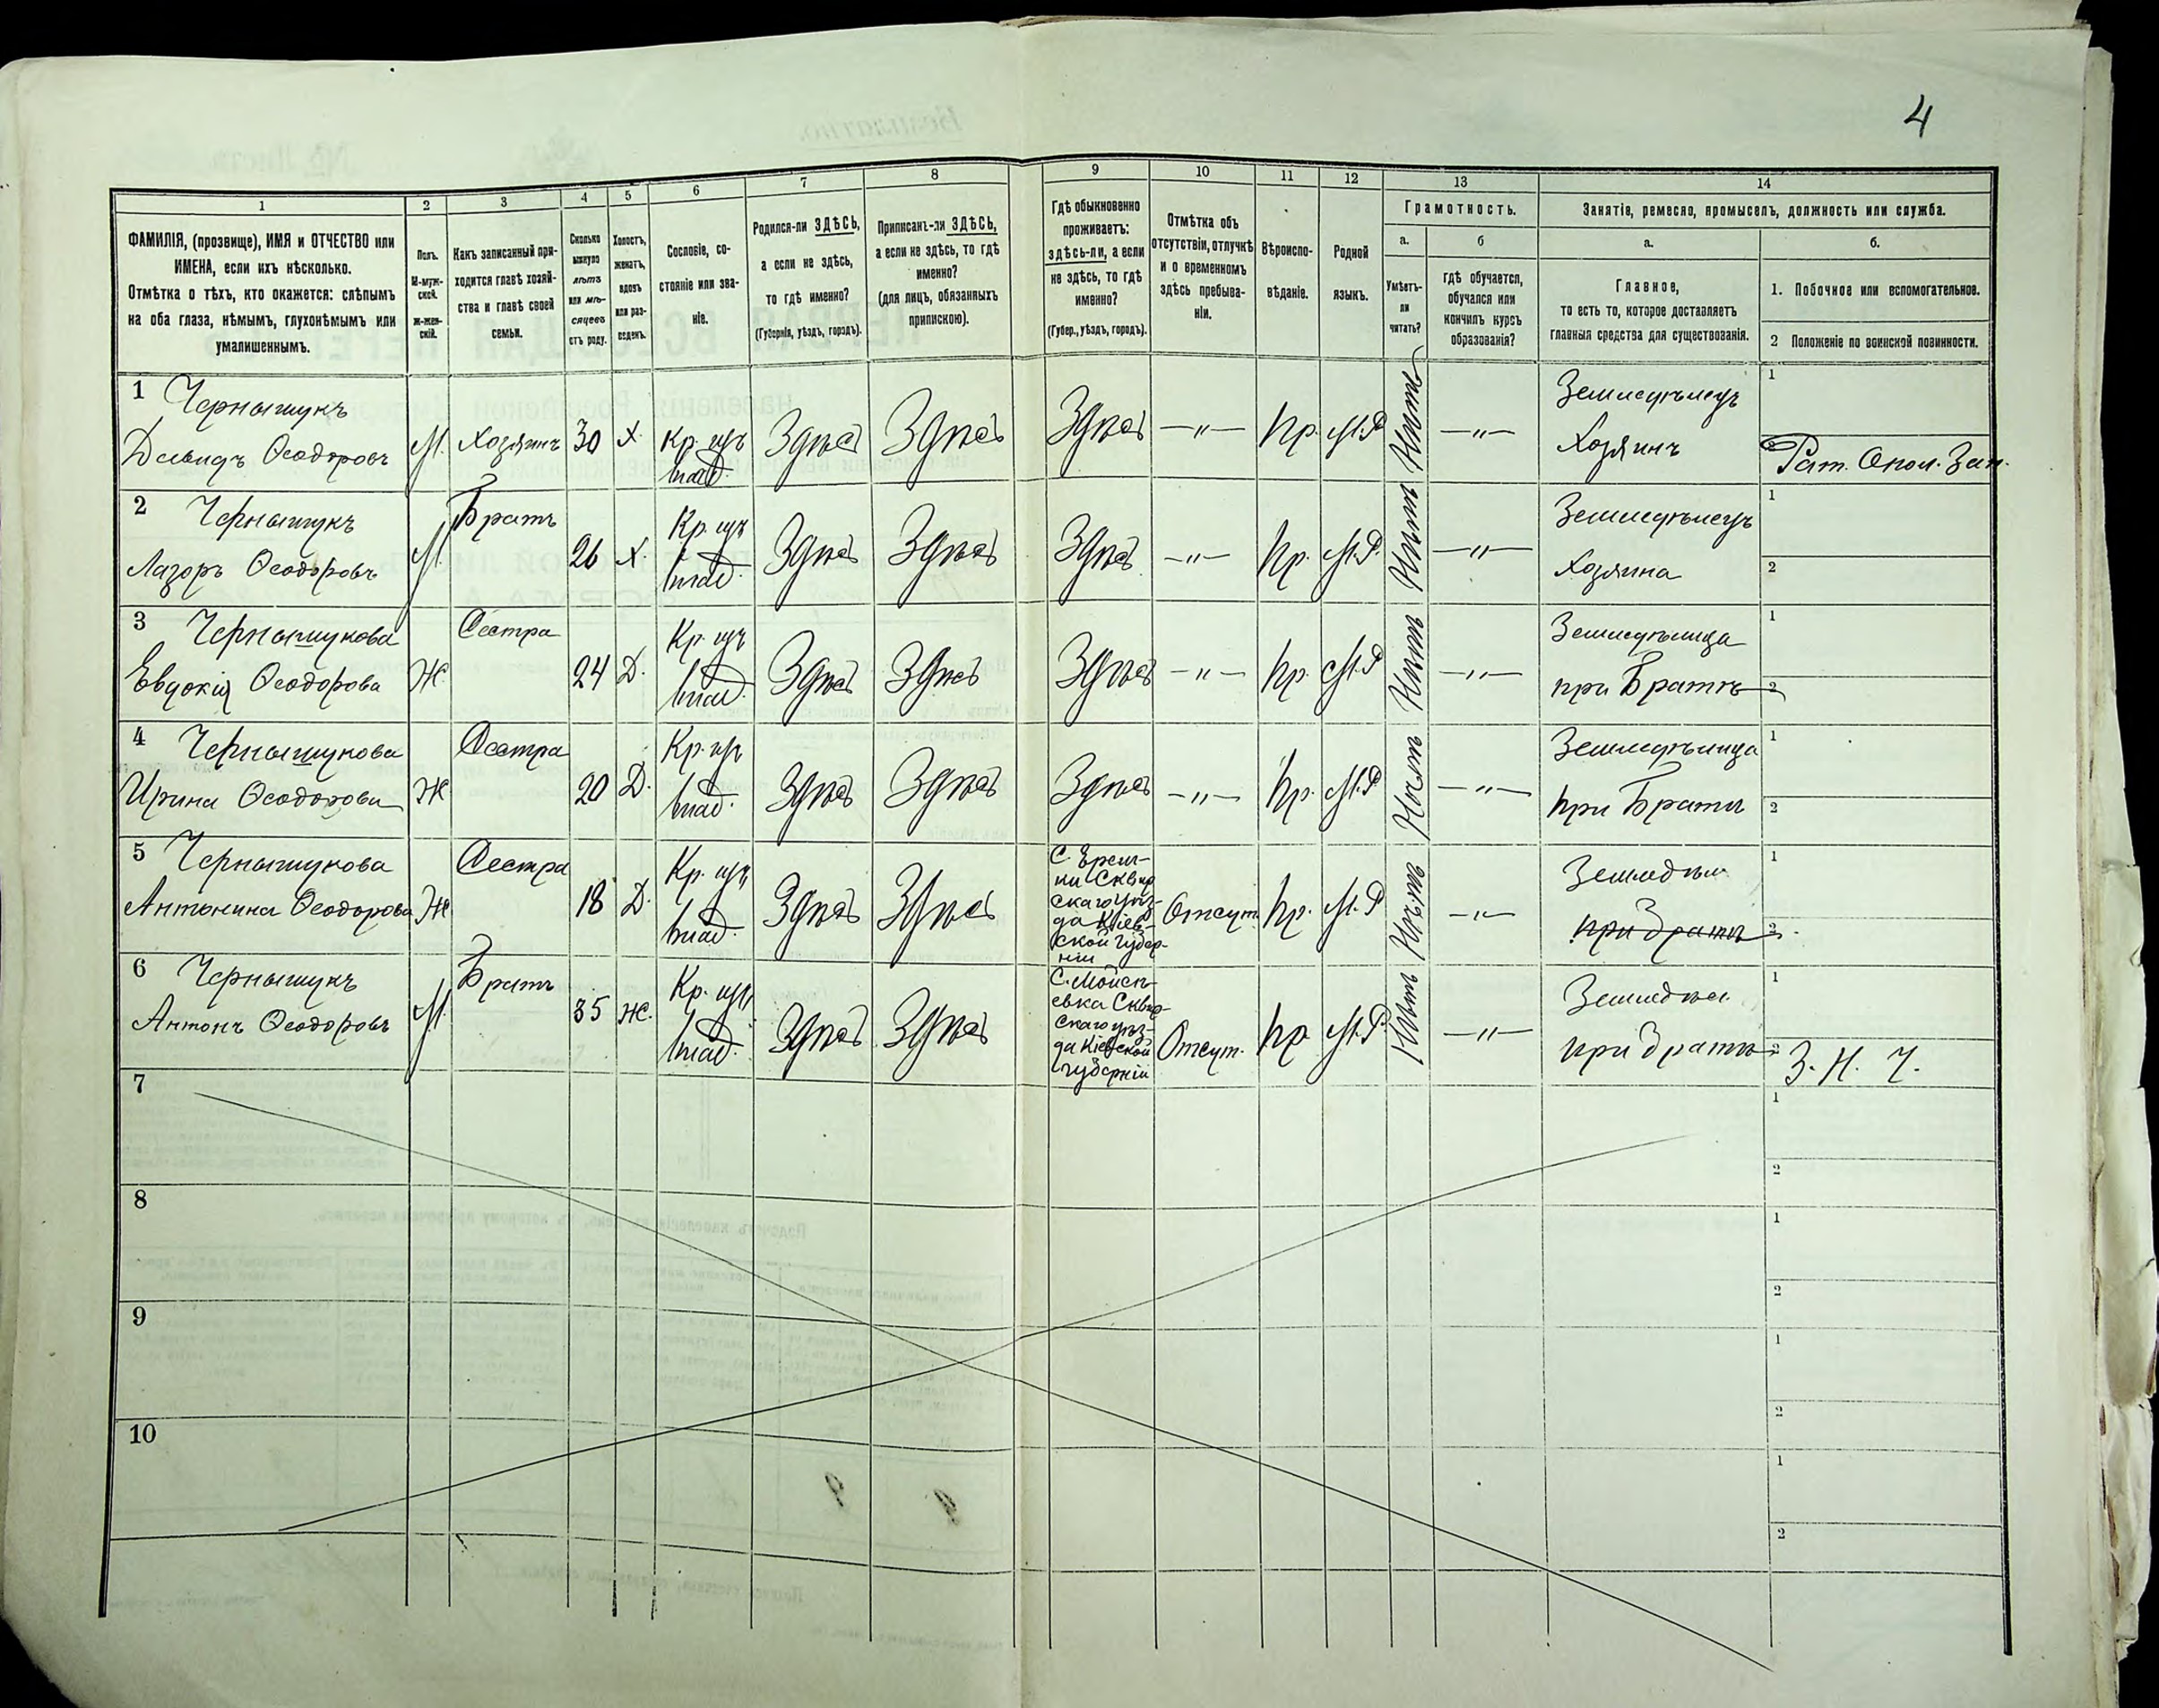 4
1
2
3
4
5
6
7
8
9
10
11
12
13
14
ФАМИЛІЯ, (прозвище), ИМЯ и ОТЧЕСТВО или
ИМЕНА, если ихъ нѣсколько.
Отмѣтка о тѣхъ, кто окажется: слѣпымъ
на оба глаза, нѣмымъ, глухонѣмымъ или
умалишеннымъ.
Полъ.
М-муж-
ской.
ж-жен-
скій.
Какъ записанный при-
ходится главѣ хозяй-
ства и главѣ своей
семьи.
Сколько
минуло
лѣтъ
или мѣ-
сяцевъ
отъ роду.
Холостъ,
женатъ,
вдовъ
или раз-
веденъ.
Сословіе, со-
стояніе или зва-
ніе.
Родился-ли ЗДѢСЬ,
а если не здѣсь,
то гдѣ именно?
(Губернія, уѣздъ, городъ).
Приписанъ-ли ЗДѢСЬ,
а если не здѣсь, то гдѣ
именно?
(для лицъ, обязанныхъ
припискою).
Гдѣ обыкновенно
проживаетъ:
здѣсь-ли, а если
не здѣсь, то гдѣ
именно?
(Губер., уѣздъ, городъ).
Отмѣтка объ
отсутствіи, отлучкѣ
и о временномъ
здѣсь пребыва-
ніи.
Вѣроиспо-
вѣданіе.
Родной
языкъ.
Грамотность.
а.
Умѣетъ-
ли
читать?
б
гдѣ обучается,
обучался или
кончилъ курсъ
образованія?
Занятіе, ремесло, промыселъ, должность или служба.
а.
Главное,
то есть то, которое доставляетъ
главныя средства для существованія.
б.
1. Побочное или вспомогательное.
2 Положеніе по воинской повинности.
1 Чернышукъ
Давидъ Ѳеодоровъ
М.
Хозяинъ
30
Х.
Кр. изъ
влад.
Здѣсь
Здѣсь
Здѣсь
—"—
Пр.
М.Р
Нѣтъ
—"—
Земледѣлецъ
Хозяинъ
1
Рат. Опол. Зап.
2 Чернышукъ
Лазоръ Ѳеодоровъ
М.
Братъ
26
Х.
Кр. изъ
влад.
Здѣсь
Здѣсь
Здѣсь
—"—
Пр.
М.Р
Нѣтъ
—"—
Земледѣлецъ
Хозяина
1
2
3 Чернышукова
Евдокія Ѳеодорова
Ж
Сестра
24
Д.
Кр. изъ
влад.
Здѣсь
Здѣсь
Здѣсь
—"—
Пр.
М.Р
Нѣтъ
—"—
Земледѣлица
при Братѣ
1
2
4 Чернышукова
Ирина Ѳеодорова
Ж
Сестра
20
Д.
Кр. изъ
влад.
Здѣсь
Здѣсь
Здѣсь
—"—
Пр.
М.Р
Нѣтъ
—"—
Земледѣлица
при Братѣ
1
2
5 Чернышукова
Антонина Ѳеодорова
Ж
Сестра
18
Д.
Кр. изъ
влад.
Здѣсь
Здѣсь
Сквир
скаго уѣз-
да Кіев-
ской Губер-
ніи
Отсут.
Пр.
М.Р
Нѣтъ
—"—
Земледѣл
при братѣ
1
2
6 Чернышукъ
Антонъ Ѳеодоровъ
М.
Братъ
35
Ж.
Кр. изъ
влад.
Здѣсь
Здѣсь
С. Мойсѣ-
евка Сквир-
скаго уѣз-
да Кіевской
губерніи
Отсут.
Пр
М.Р.
Нѣтъ
—"—
Земледѣл.
при братѣ
1
2
З. Н. Ч.
7
1
2
8
1
2
9
1
2
10
1
2